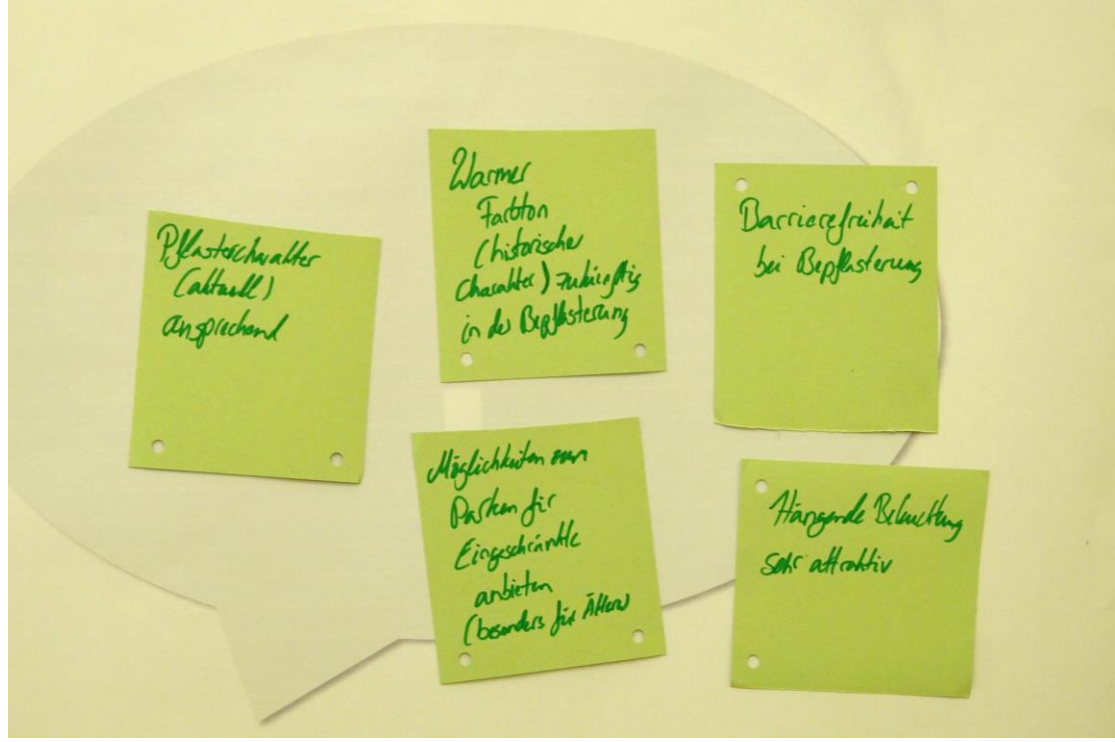 Pflastercharakter
(aktuell)
ansprechend
Warmer
Farbton
(historischer
Charakter) zukünftig
in der Bepflasterung
Barrierefreiheit
bei Bepflasterung
Möglichkeiten zum
Parken für
Eingeschränkte
anbieten
(besonders für Ältere)
Hängende Beleuchtung
sehr attraktiv